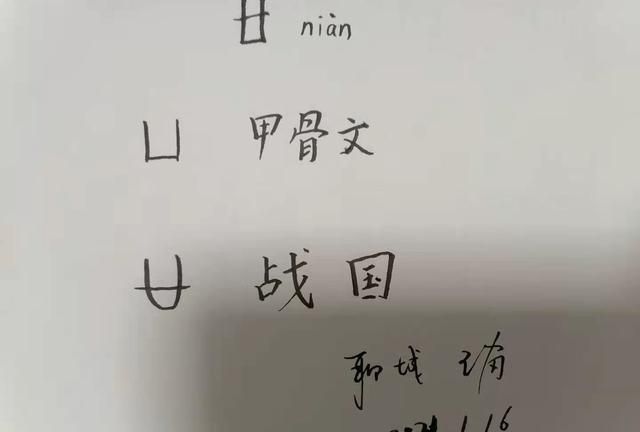 廿 niàn
凵 甲骨文
廿 战国
聊城
1.16